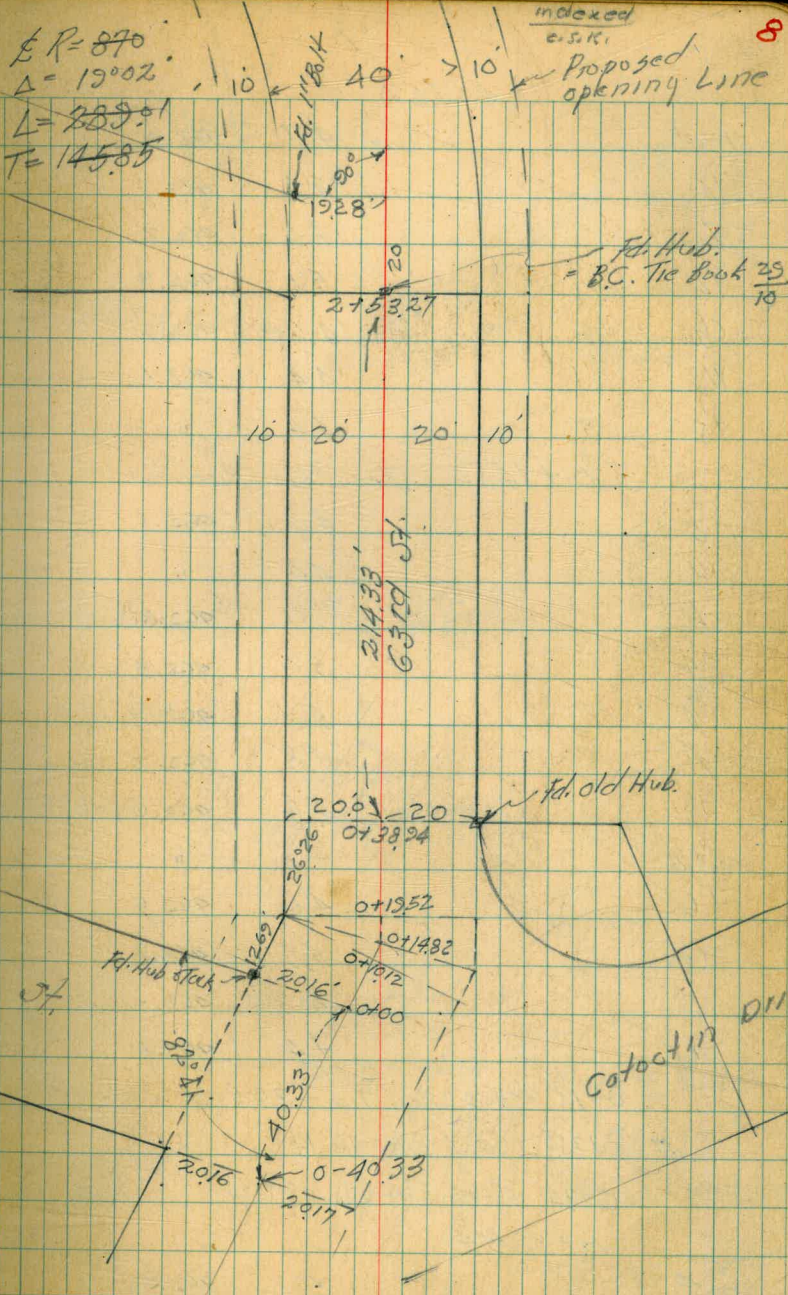 indexed
c.s.k.
8
⅊ R= 870
Δ= 19°02'
L= 289.01
T= 145.85
10'
Fd. 1" Bolt
40'
10'
Proposed
opening Line
90°
19.28'
20
Fd. Hub.
= B.C. Tie Book 29/10
2+53.27
10'
20'
20'
10'
214.33'
63rd St.
Fd. Old Hub.
20.0'
20
0+38.94
26°26'
0+19.52
12.69'
0+14.82
0+10.12
Fd. Hub & Tack
20.16'
0+00
St.
Catoctin
40.33'
20.16
0-40.33
20.17